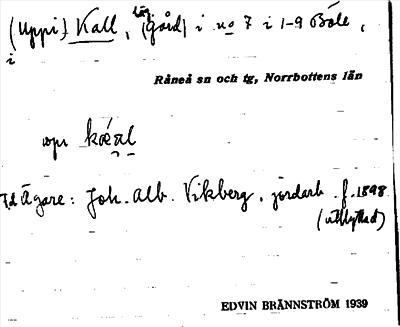 (Uppi) Kall, låg (gård) i no 7 i 1-9 Böle,
i
Råneå sn och tg, Norrbottens län
upi
Ägare: Joh. Alb. Vikberg, jordarb. f. 1898
(utflyttad)
EDVIN BRÄNNSTRÖM 1939